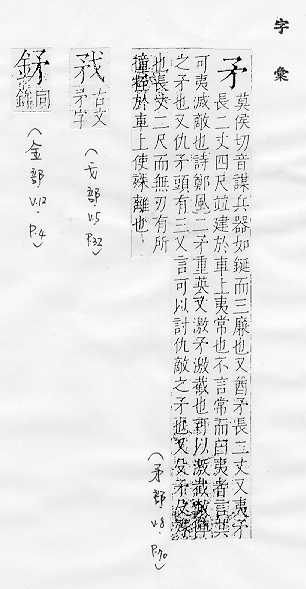 字彙
矛 莫侯切音謀兵器如鋋而三廉也又酋矛長二丈又夷矛
長二丈四尺竝建於車上夷常也不言常而曰夷者言其
可夷滅敵也詩鄭風二矛重英又激矛激截也可以激截敵陣
之矛也又仇矛頭有三叉言可以討仇敵之矛也又殳矛殳殊
也長丈二尺而無刃有所
撞挃於車上使殊離也
(矛部 V.8. P.70)
𢦧 古文
矛字
(戈部 V.5 P.32)
𨥨 同
(金部 V.12. P.4)